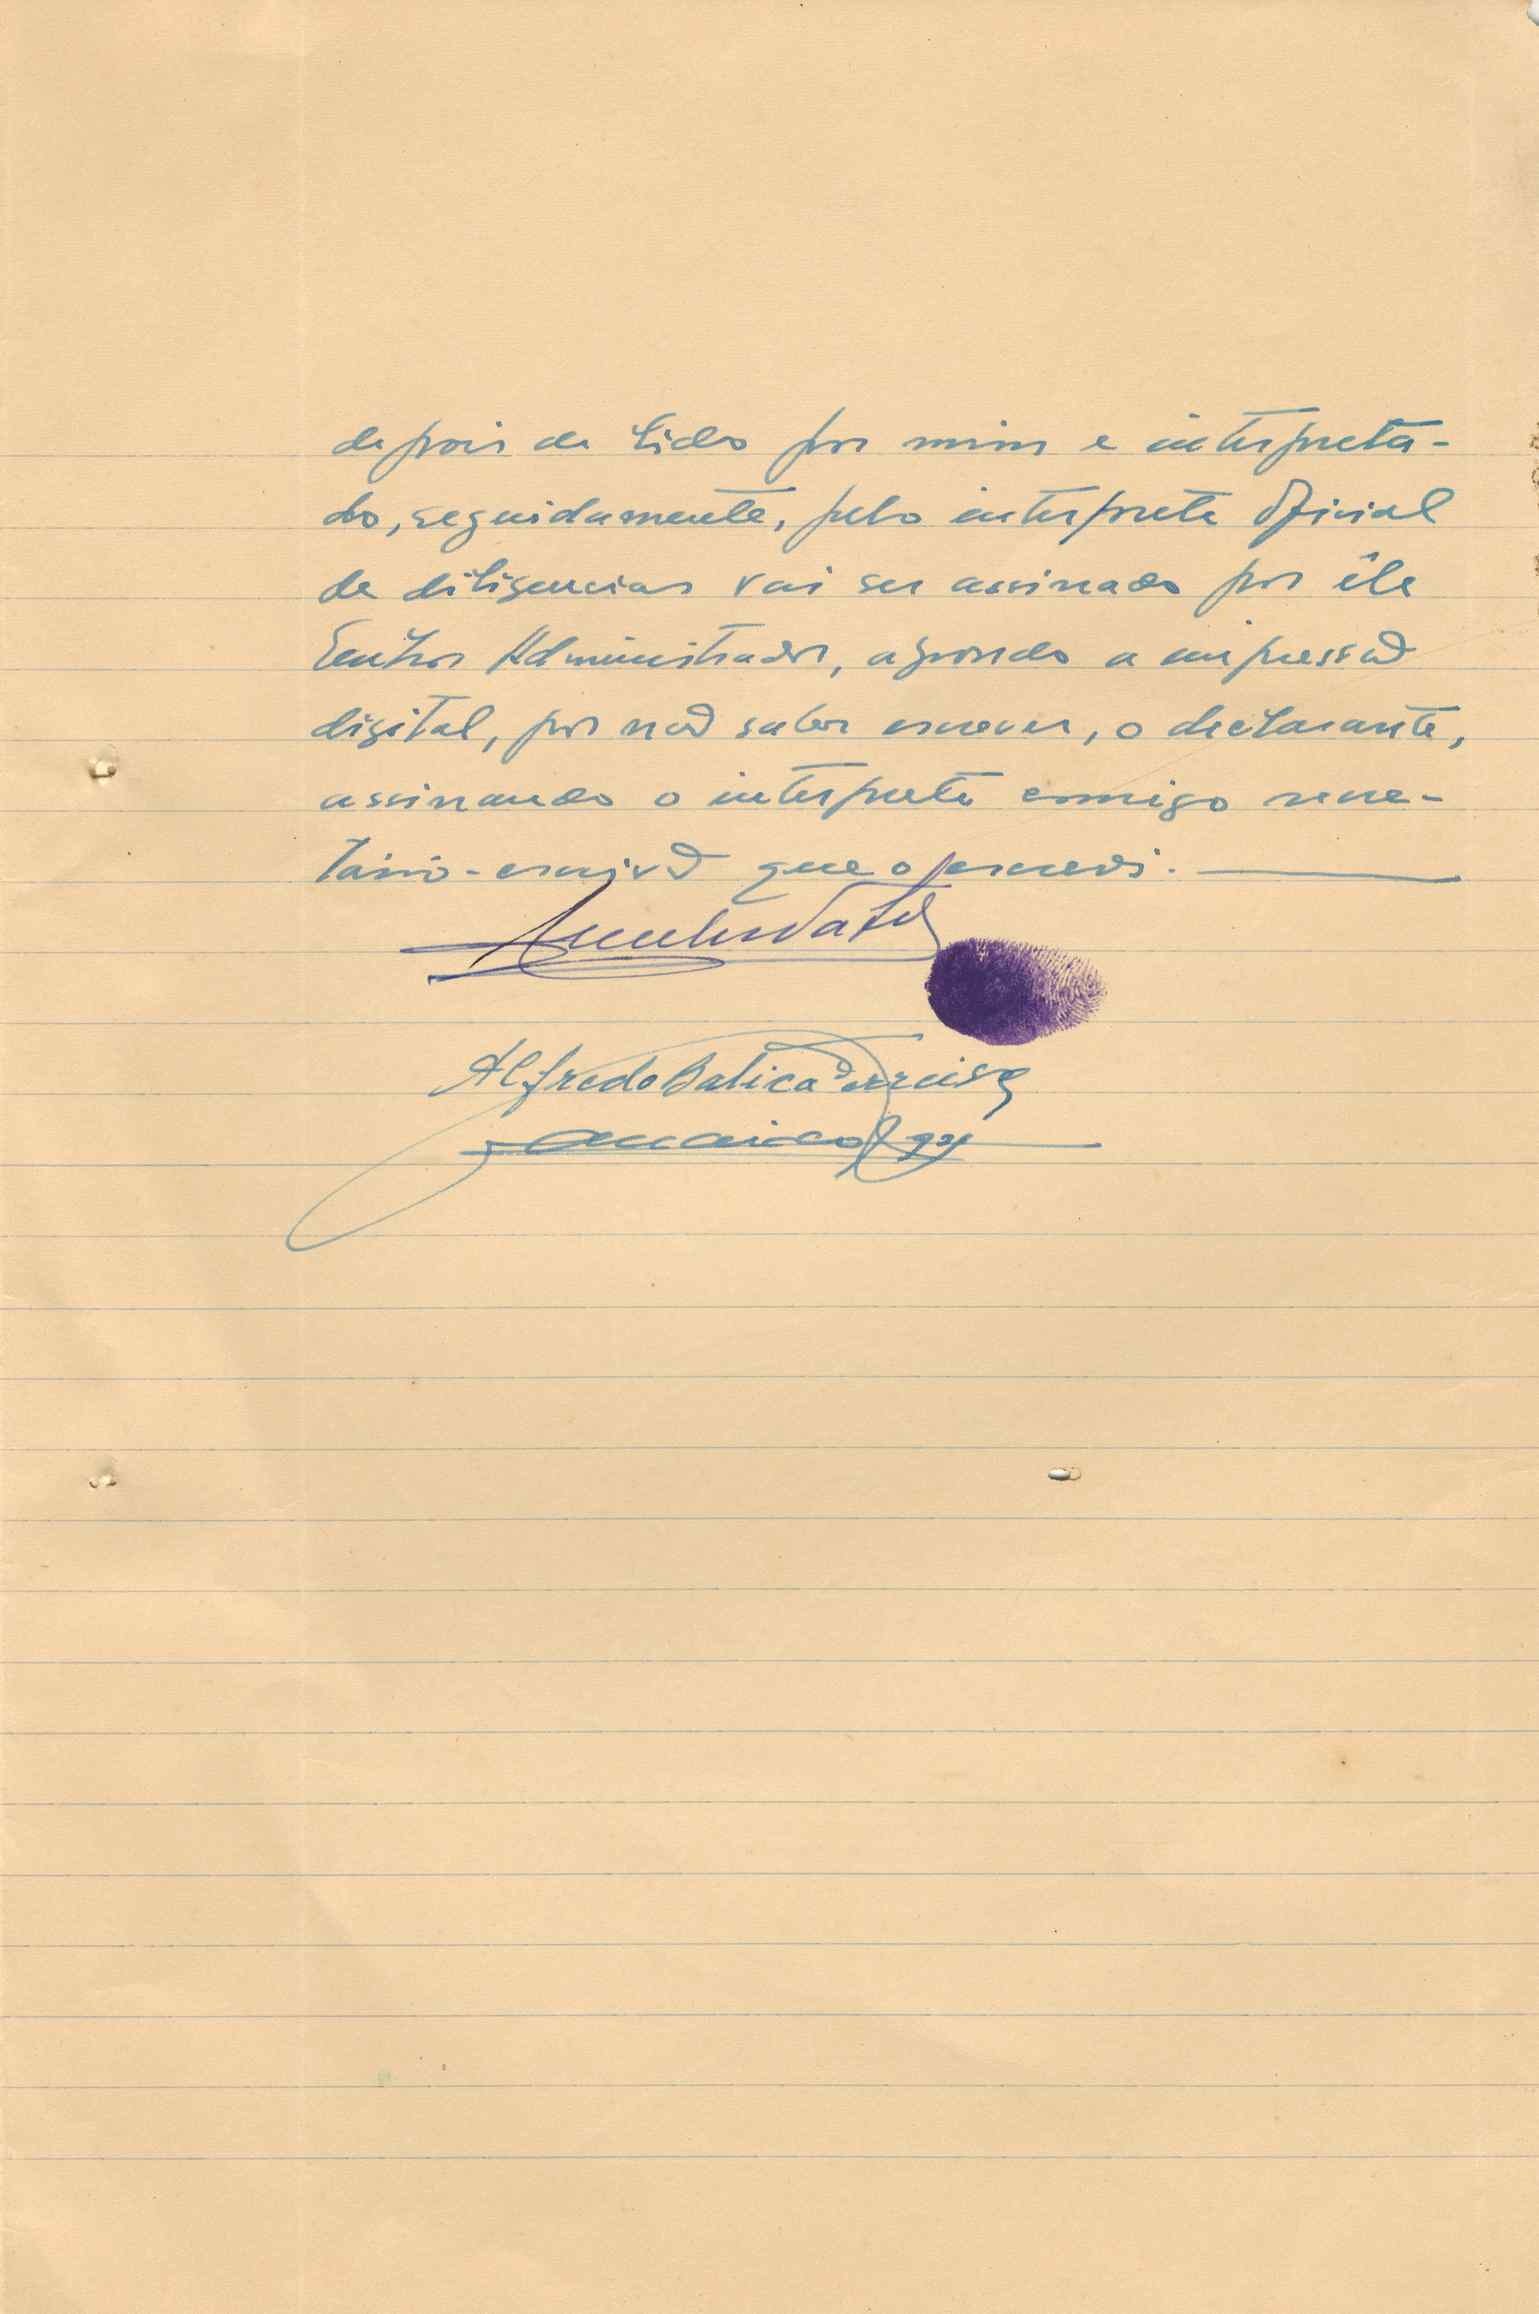 depois de lido por mim e interpreta-
do, seguidamente, pelo interprete Oficial
de diligencias vai ser assinado por êle
Senhor Administrador, apondo a impressão
digital, por não saber escrever, o declarante,
assinando o interprete comigo secre-
tário-escrivão que o escrevi.
Alfredo Batica Ferreira